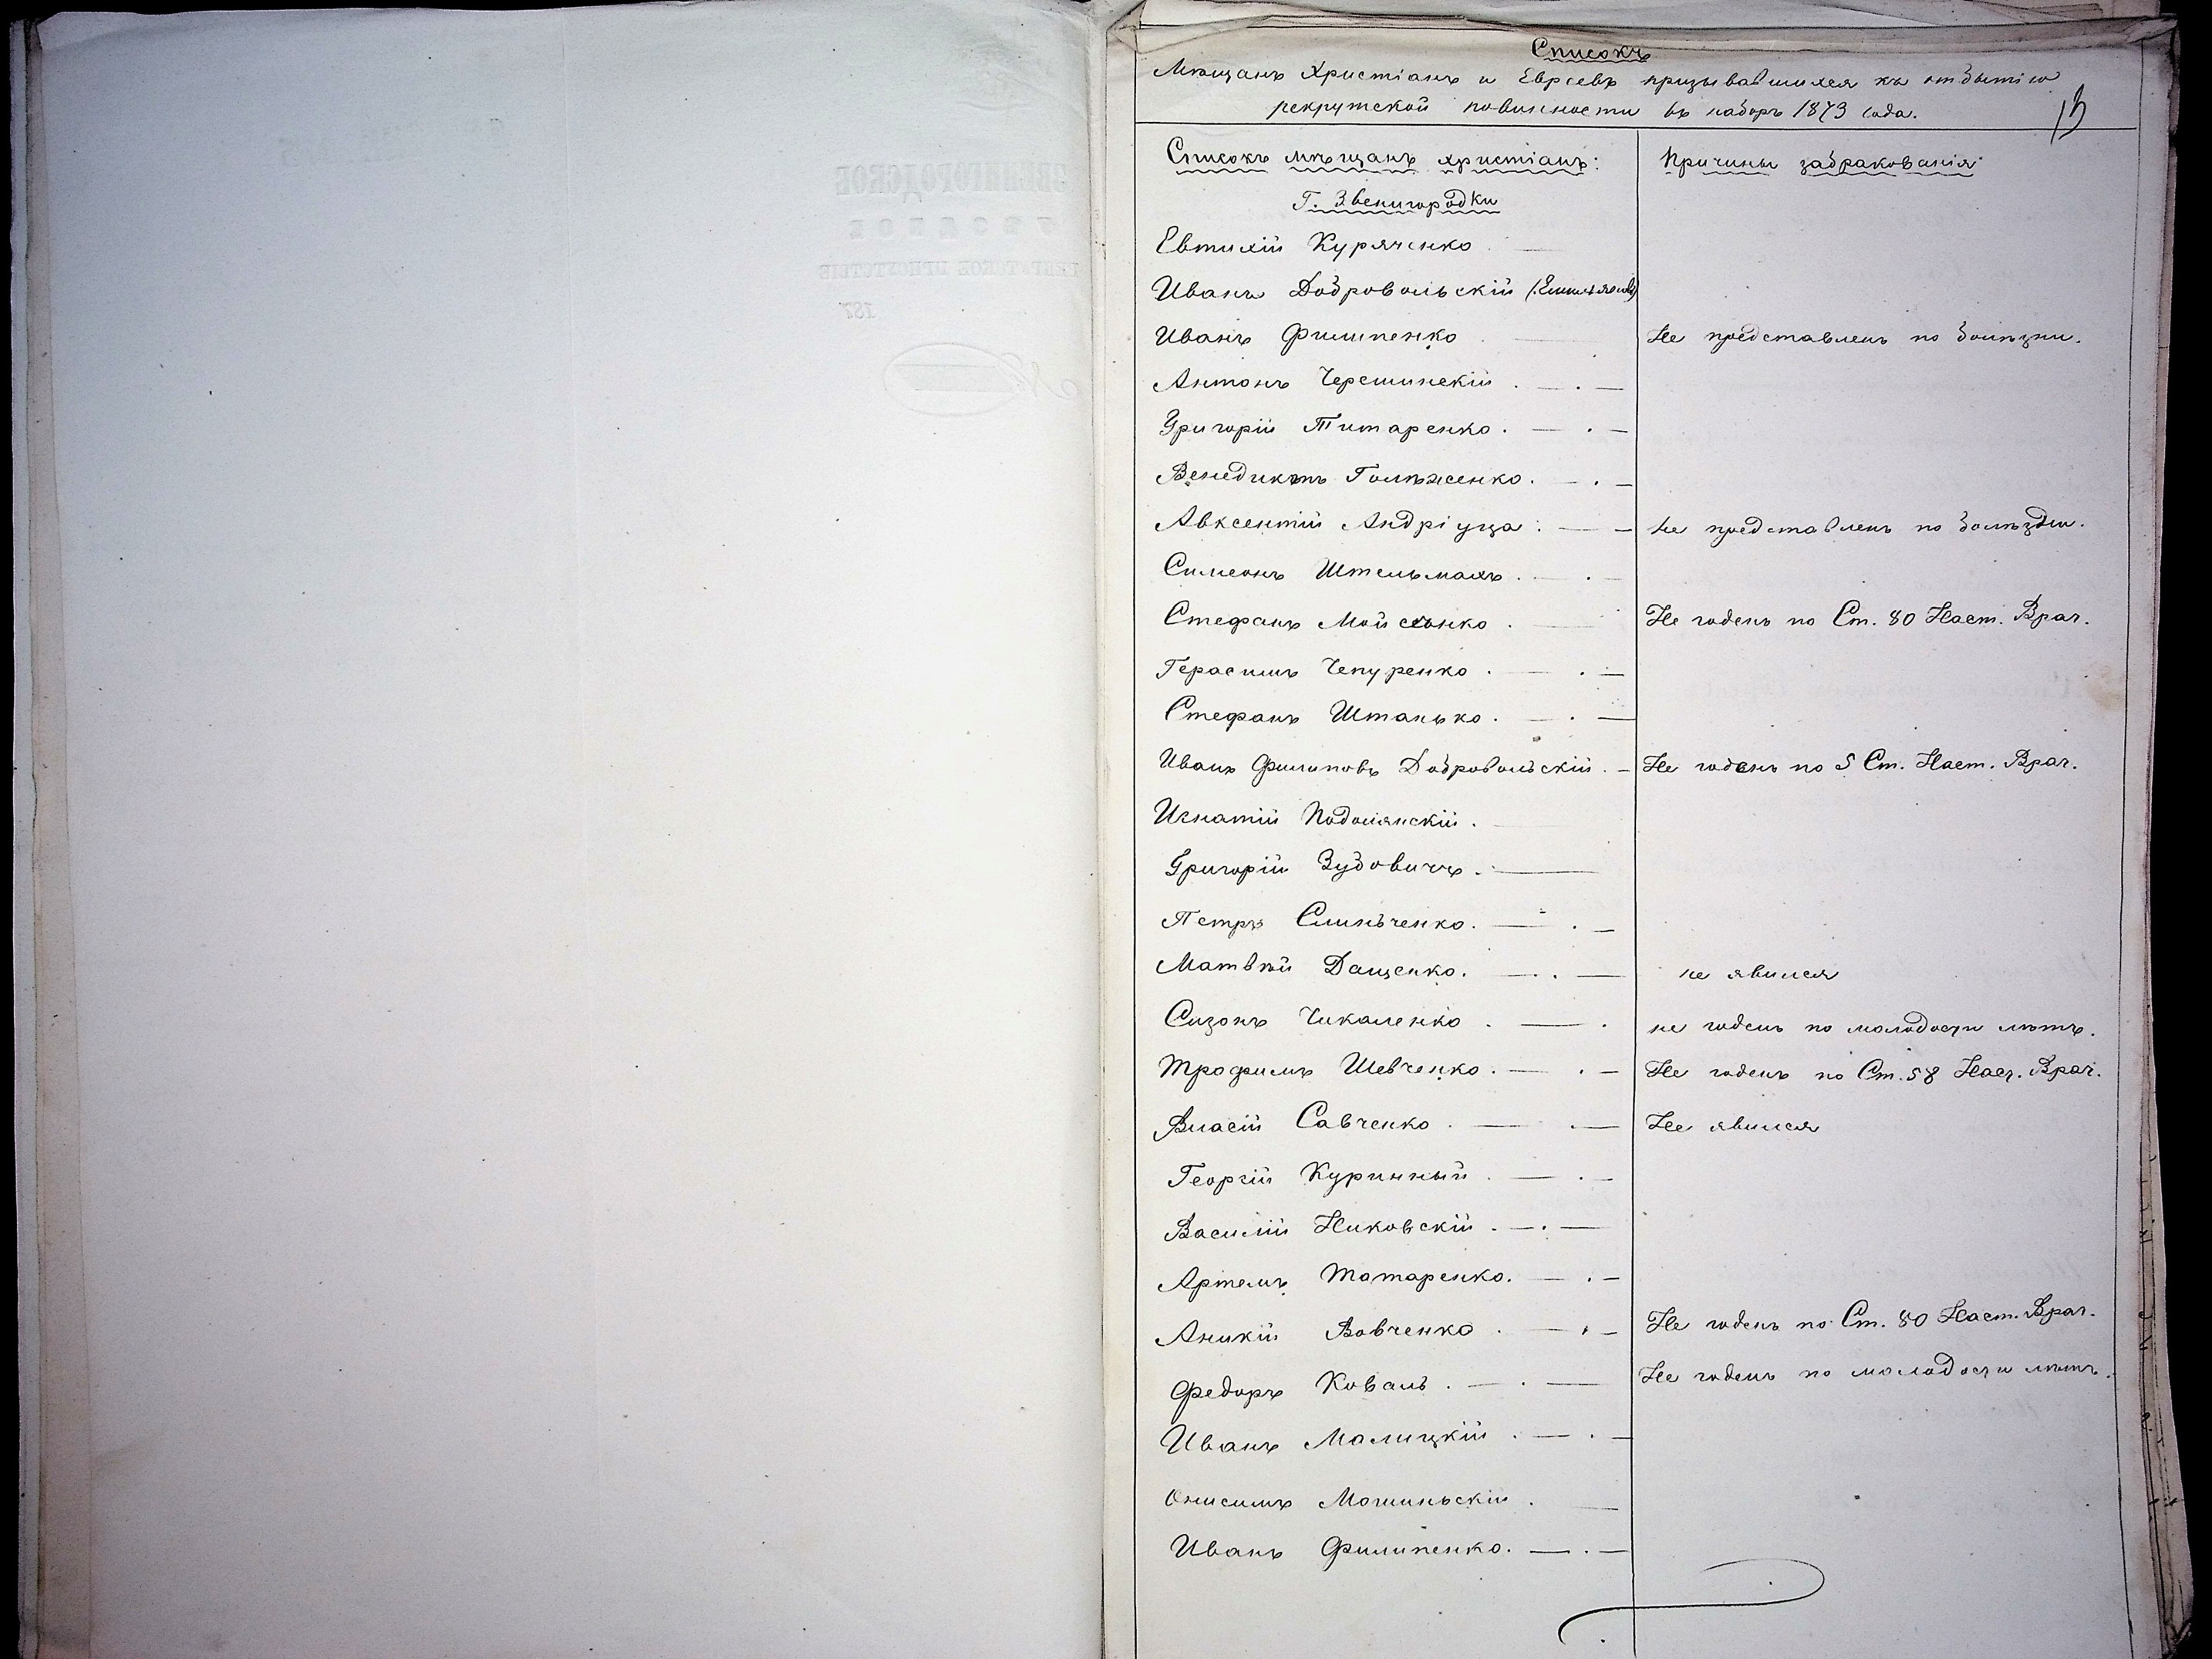 Списокъ
Мѣщанъ Христіанъ и Евреевъ призывавшихся къ отбытію
рекрутской повинности въ наборъ 1873 года.
13
Списокъ мѣщанъ христіанъ:
Причины забракованія
Г. Звенигородки
Евтихій Куряченко
Иванъ Добровольскій (Емельяновъ)
Иванъ Филипенко — Не представленъ по болѣзни.
Антонъ Черешинскій . — . —
Григорій Титаренко . — . —
Венедиктъ . — . —
Авксентій Андріуца . — — не представленъ по болѣзни.
Симеонъ Штельмахъ . — . —
Стефанъ Мойсеѣнко . — Не годенъ по Ст. 80 Наст. Врач.
Герасимъ Чепуренко . — . —
Стефанъ Штанько . — . —
Иванъ Филиповъ Добровольскій . — Не годенъ по 5 Ст. Наст. Врач.
Игнатій Подолянскій .
Григорій Зудовичъ . —
Петръ Слинѣченко . — . —
Матвѣй Дащенко . — . — не явился
Сизонъ Чикаленко . — . не годенъ по молодости лѣтъ.
Трофимъ Шевченко . — . — Не годенъ по Ст. 58 Наст. Врач.
Власій Савченко . — . — Не явился
Георгій Куринный . — . —
Василій Никовскій . — . —
Артемъ Татаренко . — . —
Аникій Вовченко . — . — Не годенъ по Ст. 80 Наст. Врач.
Федоръ Коваль . — . — Не годенъ по молодости лѣтъ.
Иванъ Малицкій . — . —
Онисимъ . —
Иванъ Филипенко . — . —
ЗВЕНИГОРОДСКОЕ
УѢЗДНОЕ
РЕКРУТСКОЕ ПРИСУТСТВІЕ
187
№